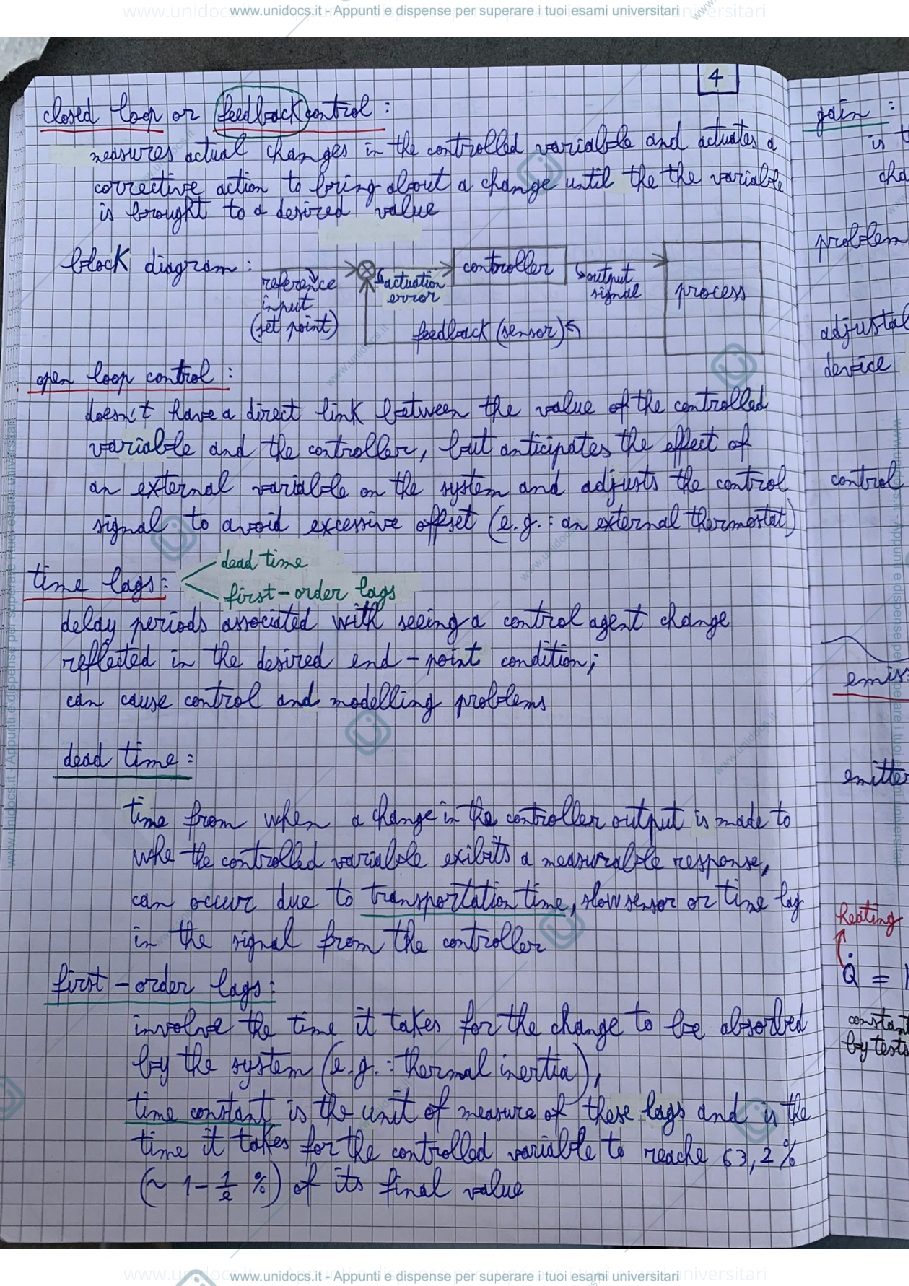 www.unidocs.it - Appunti e dispense per superare i tuoi esami universitari
4
closed loop or feedback control :
measures actual changes in the controlled variable and actuates a
corrective action to bring about a change until the the variable
is brought to a desired value
block diagram :
reference
input
(set point)
actuation
error
controller
output
signal
process
feedback (sensor)
open loop control :
doesn't have a direct link between the value of the controlled
variable and the controller, but anticipates the effect of
an external variable on the system and adjusts the control
signal to avoid excessive offset (e.g.: an external thermostat)
time lags :
dead time
first-order lags
delay periods associated with seeing a control agent change
reflected in the desired end-point condition;
can cause control and modelling problems
dead time :
time from when a change in the controller output is made to
whe the controlled variable exibits a measurable response,
can occur due to transportation time, slow sensor or time lag
in the signal from the controller
first-order lags :
involve the time it takes for the change to be absorbed
by the system (e.g.: thermal inertia),
time constant is the unit of measure of these lags and is the
time it takes for the controlled variable to reache 63,2%
(~ 1-1/e %) of its final value
gain :
is
problem
control
heating
Q̇ =
by tests
www.unidocs.it - Appunti e dispense per superare i tuoi esami universitari